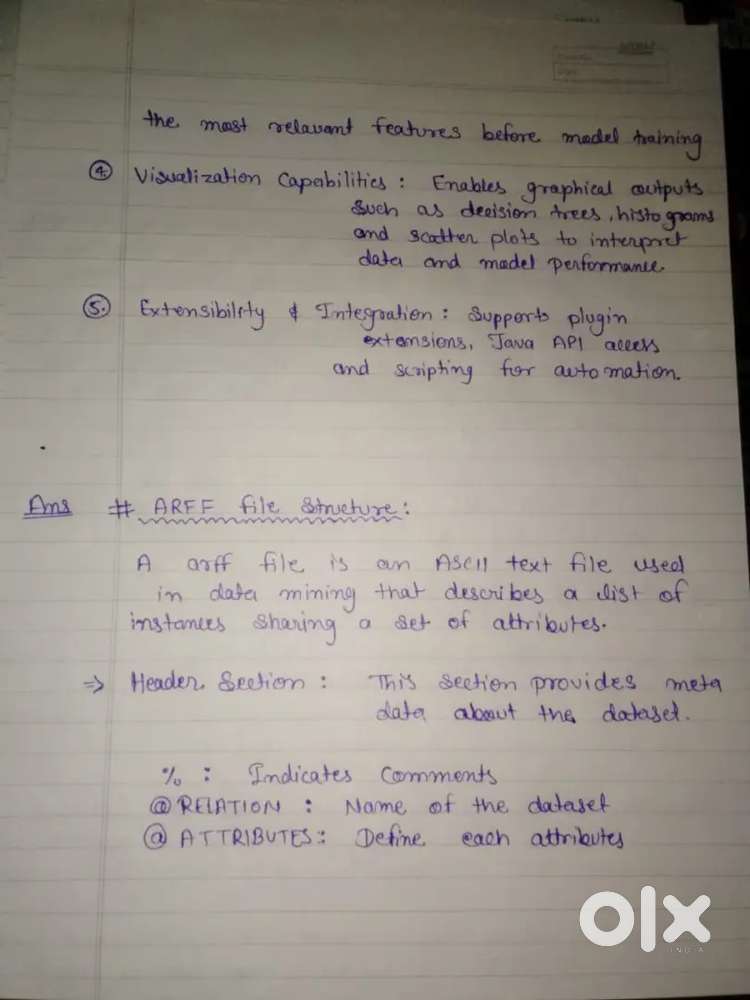 the most relavant features before model training
4. Visualization Capabilities : Enables graphical outputs
such as decision trees, histograms
and scatter plots to interpret
data and model performance.
5. Extensibility & Integration : Supports plugin
extensions, Java API access
and scripting for automation.
Ans # ARFF file structure :
A arff file is an ASCII text file used
in data mining that describes a list of
instances sharing a set of attributes.
⇒ Header Section : This section provides meta
data about the dataset.
% : Indicates Comments
@ RELATION : Name of the dataset
@ ATTRIBUTES : Define each attributes
olx
INDIA